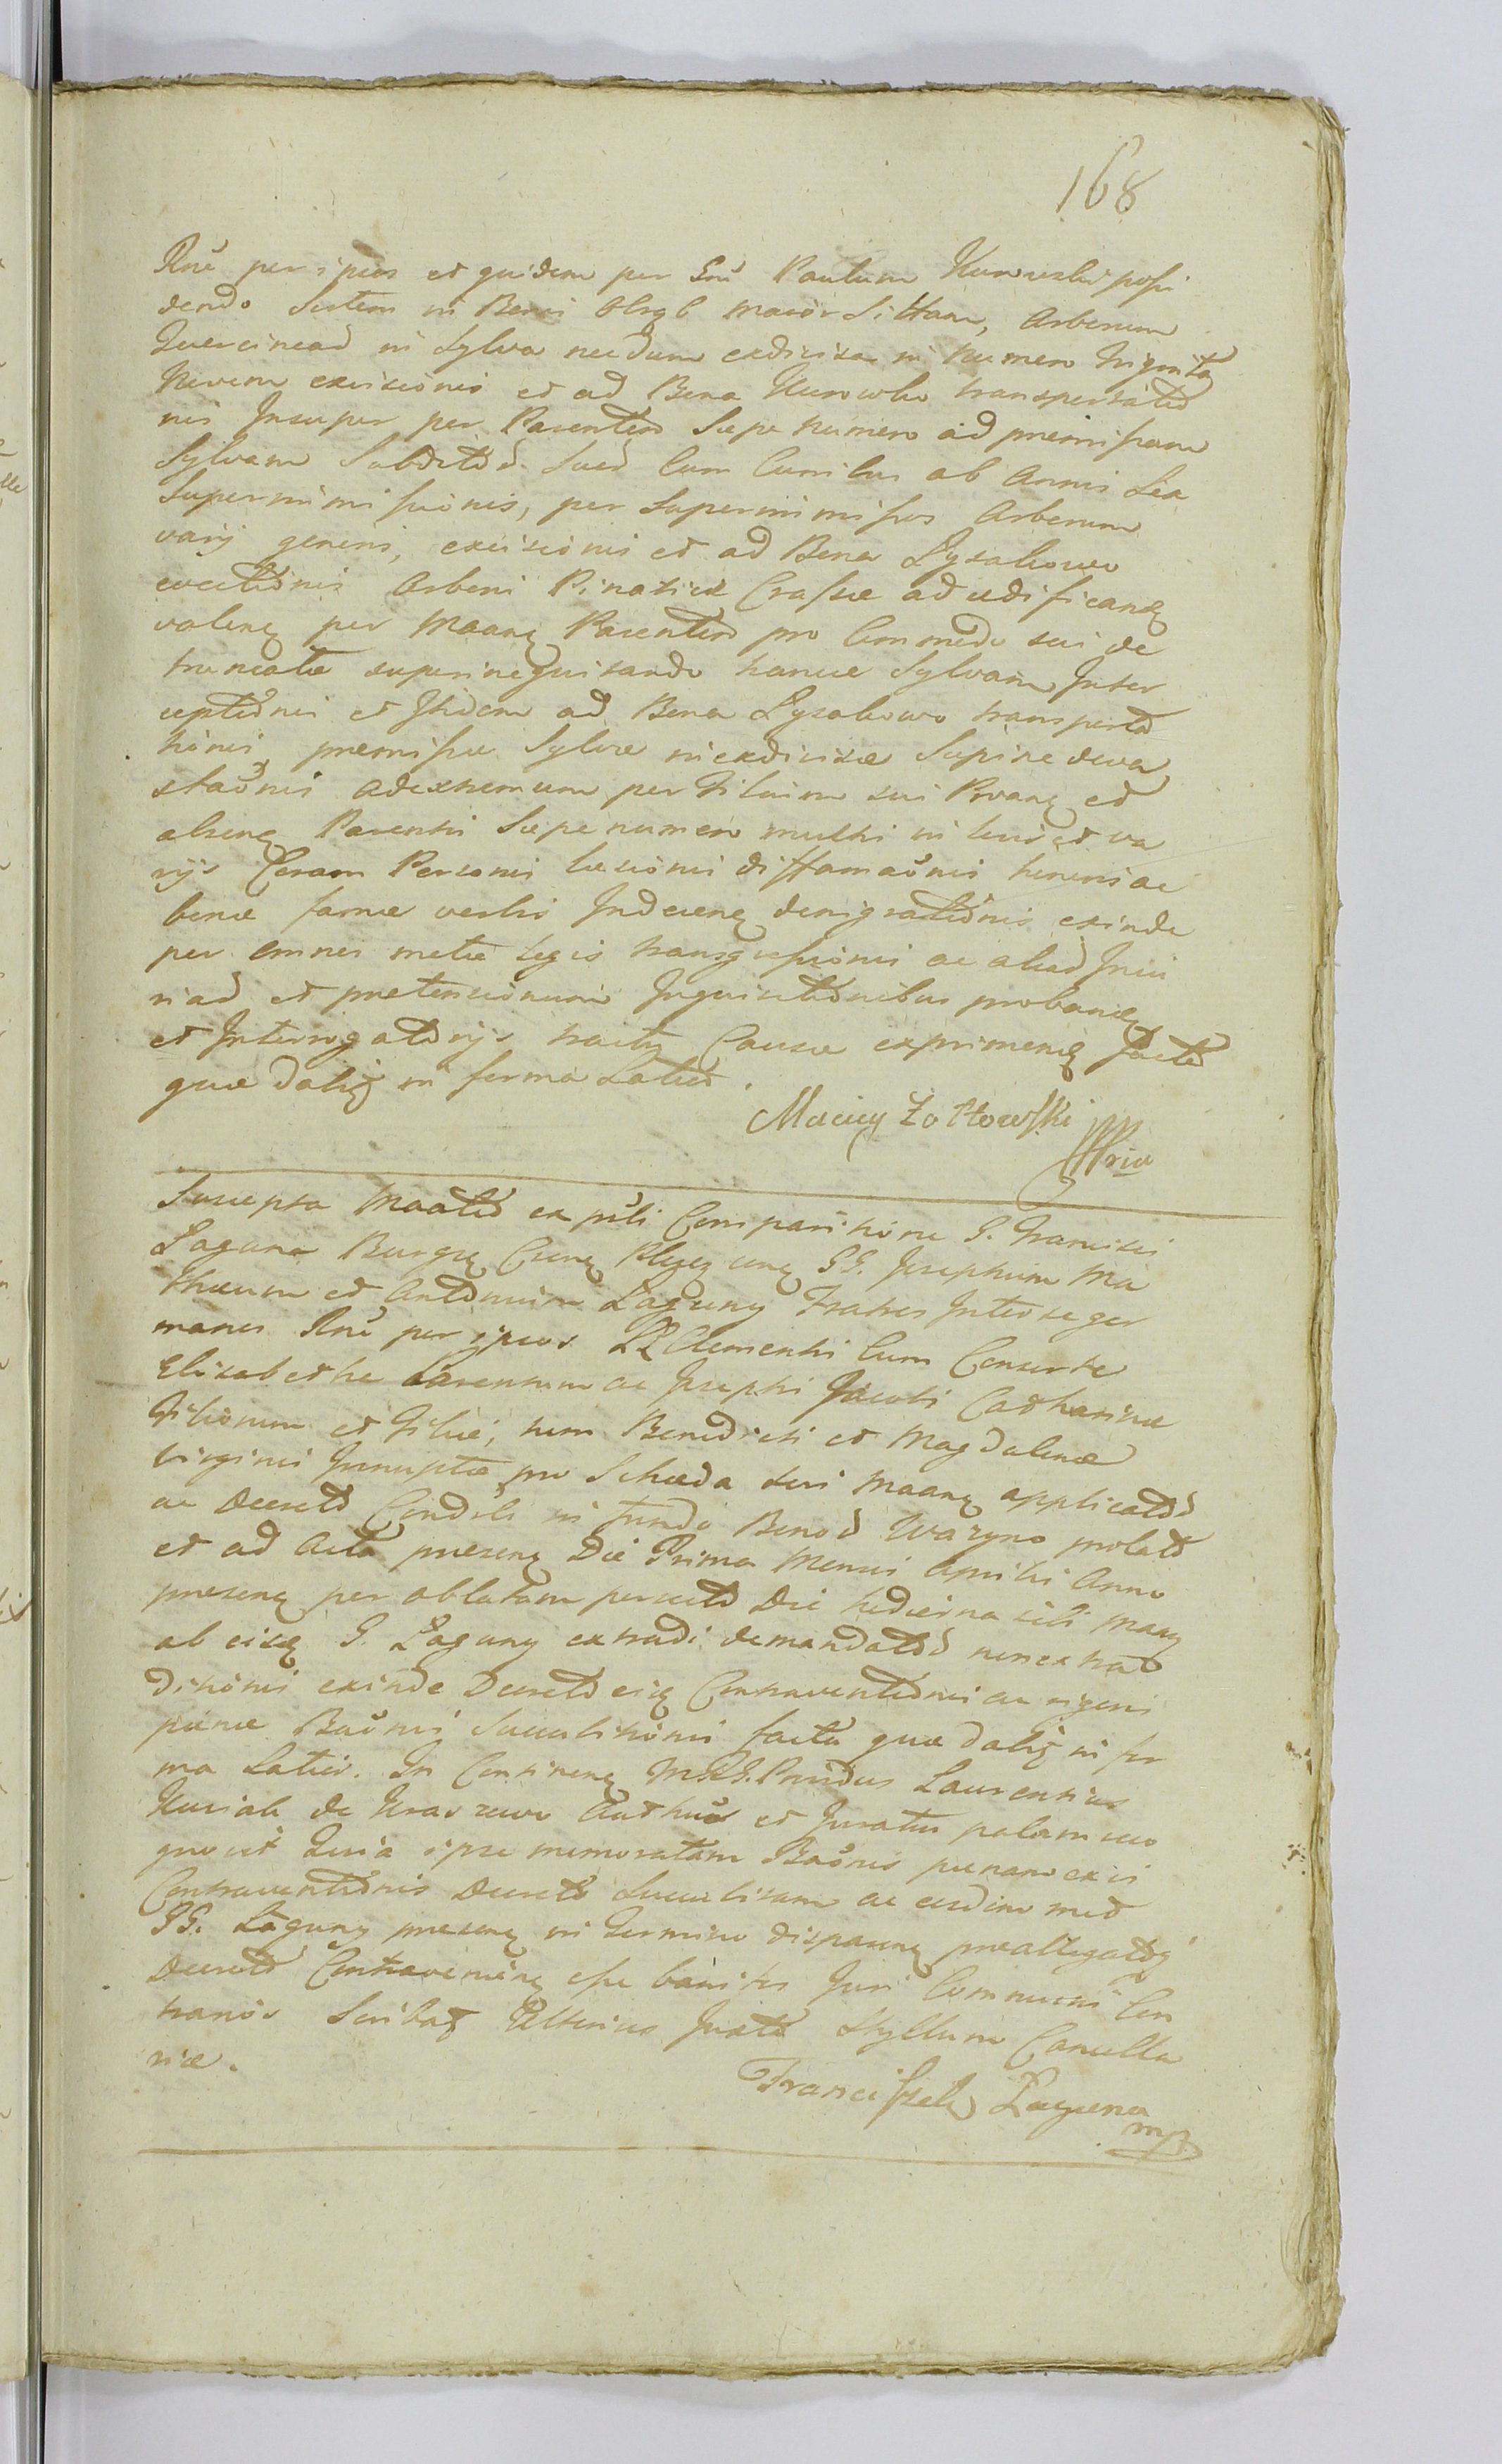 168
Rně per ipsos et quidem per Gnū Paulum Kurowski possi
dendo Sortem in Bonis Olszyc maior Sittam, Arborum
Quercinead in Sylva necdum exdivisa in Numero Triginta
Novem excisionis et ad Bona Kurowko transportatio
nis Insuper per Parentem Sæpe numero ad premissam
Sylvam Subditos Suos Cum Curribus ab Annis Sex
Superimmissionis, per Superimmissos Arborum
varij generis, excisionis et ad Bona Łysakowo
evectionis Arboris Pinastiex Crassæ ad ædificanꝗ
valenꝗ per Maanꝗ Parentem pro Commodo sui de
truncatæ superinequitando hancce Sylvam Inter
ceptionis et Ibidem ad Bona Łysakowo transporta
tionis, premissæ Sylvæ inexdivisæ Supine deva
staönis ad extremum per Filium sui Proanꝗ et
absenꝗ Parentis Sæpe numero multis in locis et va
rijs Coram Personis læsionis diffamaönis honoris ac
bonæ famæ verbis Indecenꝗ denigrationis exinde
per omnes metæ legis transgressionis ac aliad Iniu
riad et pretensionum Inquisitionibus probanꝗ
et Interrogatorijs tractu Causæ exprimenꝗ facta
quæ dabiꝗ in forma Latiori.
Maciey Żołtowski mpp
Suscepta Maatio ex pñti Comparitione G. Francisci
Łaguna Burgꝗ Csenꝗ GG. Josephum Ma
thæum et Antonium Łaguny Fratres Inter se ger
manos Rně per ipsos LL Clementis Cum Consorte
Elisabethæ Parentum ac Josephi Jacobi Catharinæ
Filiorum et Filiæ, tum Benedicti et Magdalenæ
Virginis Innuptæ, pro Scheda sui Maanꝗ applicatod
ac Decreto Condili in fundo Bonod Waryno prolato
et ad Acta presenꝗ Die Prima Mensis Aprilis Anno
presenꝗ per oblatam porrecto Die hodierna sibi Maanꝗ
ab eisꝗ G. Łaguny extradi demandatod non extra
ditionis exinde Decreto eiꝗ Contraventionis ac rigoris
pænæ Baönis Succubitionis facta quæ dabiꝗ in for
ma Latiori. In Continenꝗ Mñ. G. Providus Laurentius
Kusiak de Kraszewo Authus et Juratus palam reco
gnovit Quia ipse memoratam Baönis pænam ex vi
Contraventionis Decreto Succubitam ac eosdem med
GG. Łaguny presenꝗ in Termino disparenꝗ preallegatoꝗ
Decreto Contravenienꝗ esse banitos Juri Communi Con
trarios Scribaꝗ Ulterius Juxta Styllum Cancella
riæ.
Franciszek Łaguna
mp